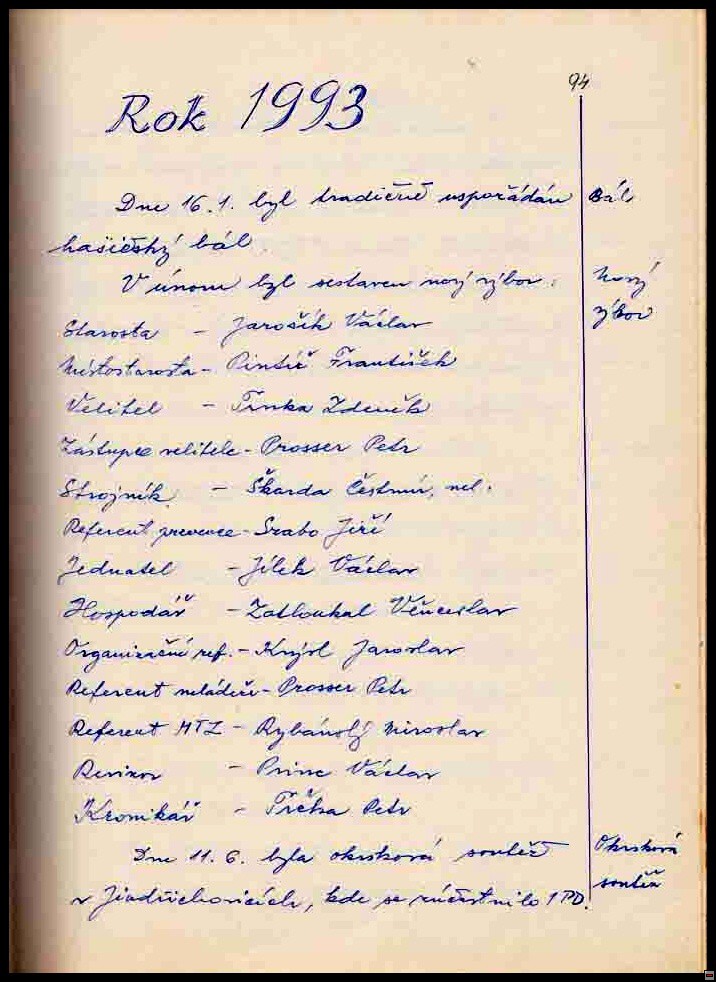 94
Rok 1993
Dne 16.1. byl tradičně uspořádán Bál
hasičský bál.
V únoru byl sestaven nový výbor: Nový
výbor
Starosta - Jarošík Václav
Místostarosta - František
Velitel - Trnka Zdeněk
Zástupce velitele - Prosser Petr
Strojník - Škarda Čestmír, ml.
Referent prevence - Szabo Jiří
Jednatel - Jílek Václav
Hospodář - Zatloukal Věnceslav
Organizační ref. - Jaroslav
Referent mládeže - Prosser Petr
Referent MTZ - Rybánský Miroslav
Revizor - Princ Václav
Kronikář - Petr
Dne 11.6. byla okrsková soutěž Okrsková
soutěž
v Jindřichovicích, kde se zúčastnilo 1 PD.